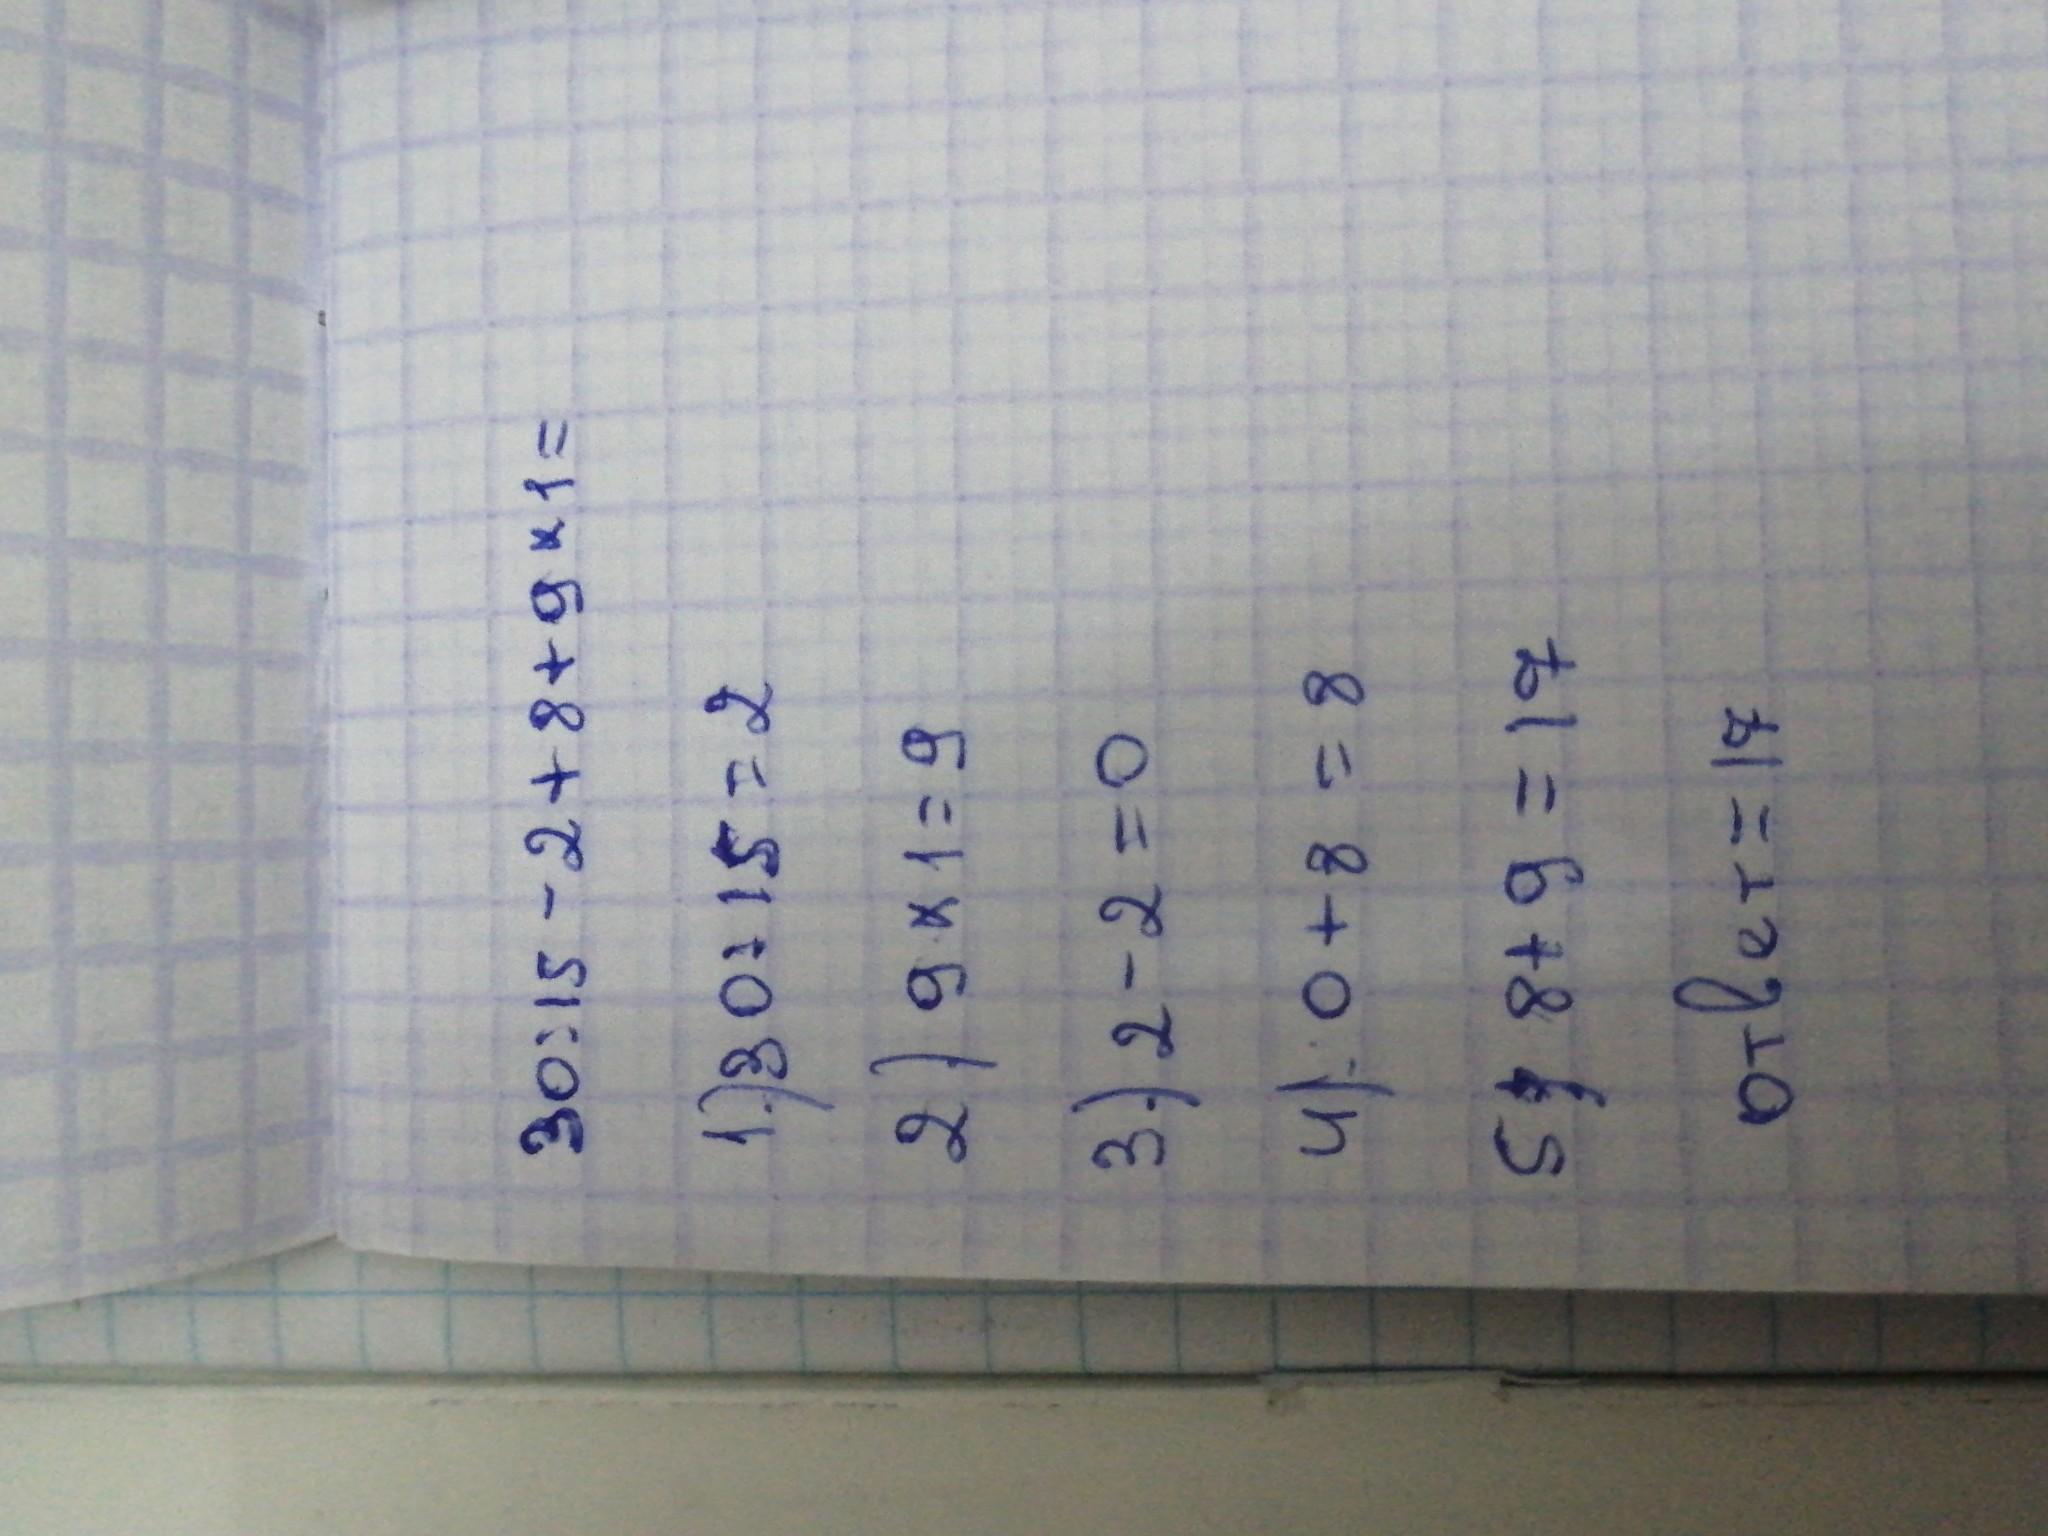 30:15-2+8+9×1=
1.) 30:15=2
2) 9×1=9
3.) 2-2=0
4). 0+8=8
5) 8+9=17
ответ=17